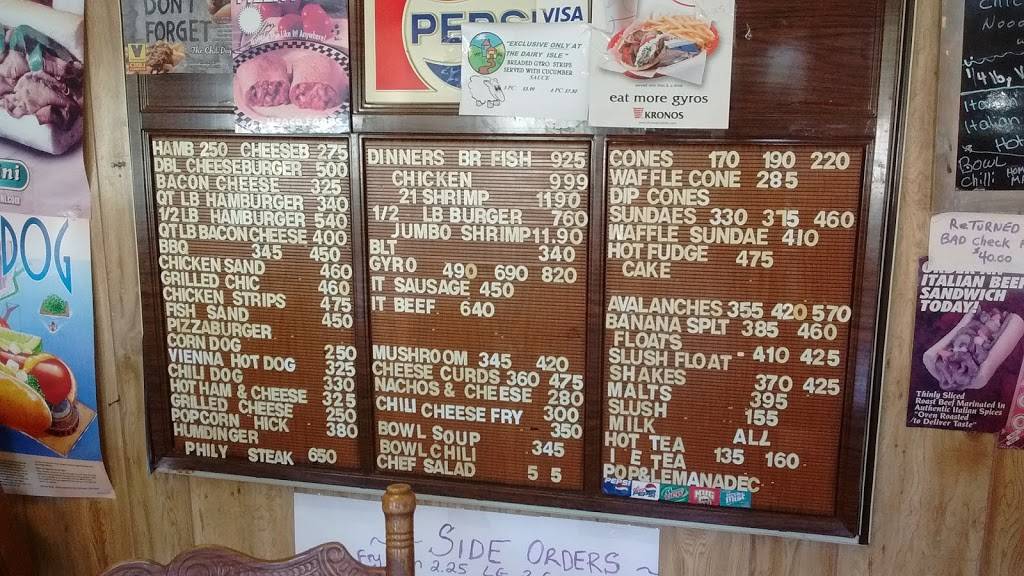 DON'T
FORGET
The Chili Dog
PEPSI
VISA
"EXCLUSIVE ONLY AT
THE DAIRY ISLE"
BREADED GYRO STRIPS
SERVED WITH CUCUMBER
SAUCE
eat more gyros
KRONOS
HAMB 250 CHEESEB 275
DBL CHEESEBURGER 500
BACON CHEESE 325
QT LB HAMBURGER 340
1/2 LB HAMBURGER 540
QT LB BACON CHEESE 400
BBQ 345 450
CHICKEN SAND 460
GRILLED CHIC 460
CHICKEN STRIPS 475
FISH SAND 450
PIZZABURGER
CORN DOG 250
VIENNA HOT DOG 325
CHILI DOG 330
HOT HAM & CHEESE 325
GRILLED CHEESE 250
POPCORN HICK 380
HUMDINGER
PHILY STEAK 650
DINNERS BR FISH 925
CHICKEN 999
21 SHRIMP 1190
1/2 LB BURGER 760
JUMBO SHRIMP 11.90
BLT 340
GYRO 490 690 820
IT SAUSAGE 450
IT BEEF 640
MUSHROOM 345 420
CHEESE CURDS 360 475
NACHOS & CHEESE 280
CHILI CHEESE FRY 300
BOWL SOUP 350
BOWL CHILI 345
CHEF SALAD 5 5
CONES 170 190 220
WAFFLE CONE 285
DIP CONES
SUNDAES 330 375 460
WAFFLE SUNDAE 410
HOT FUDGE 475
CAKE
AVALANCHES 355 420 570
BANANA SPLT 385 460
FLOATS
SLUSH FLOAT 410 425
SHAKES 370 425
MALTS 395
SLUSH 155
MILK
HOT TEA ALL
I E TEA 135 160
POP&LEMANADEC
PEPSI
MUG
DOG
ReTURNED
BAD check
$40.00
ITALIAN BEEF
SANDWICH
TODAY!
Thinly Sliced
Roast Beef Marinated In
Authentic Italian Spices
"Oven Roasted
to Deliver Taste"
1/4 lb
Italian
Italian
Bowl
Chili
SIDE ORDERS
2.25 LG